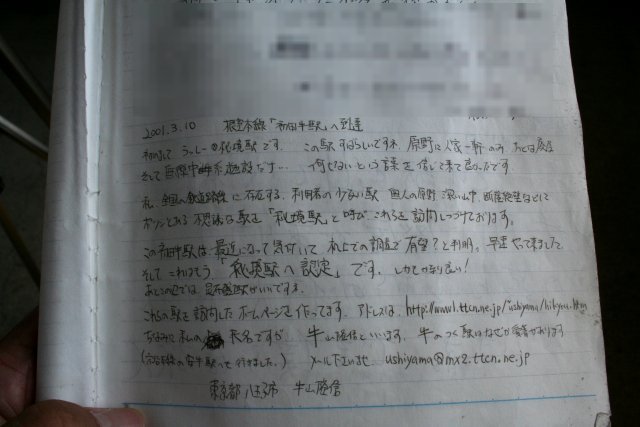 2001.3.10 根室本線「初田牛駅」へ到達
初めまして うっしー@秘境駅です。この駅すばらしいですネ 原野に人家一軒のみ あとは
そして 何もないという 信じて来て良かったです
私、全国の鉄道路線に存在する、利用者の少ない駅 無人の原野、深い山中、断崖絶壁などに
ポツンとある 不思議な駅を「秘境駅」と呼び、これらを訪問しつづけております。
この初田牛駅は、最近になって気付いて 机上での調査で 有望?と判明。早速やって来ました
そして これはもう「秘境駅へ認定」です。しかし が良い!
あとこの辺では いいですネ
これらの駅を訪問したホームページを作ってます。アドレスは、http://www1.ttcn.ne.jp/~ushiyama/hikyou.htm
ちなみに私の 氏名ですが、牛山隆信といいます。牛のつく駅はなぜか愛着があります
(宗谷本線の安牛駅へも行きました。) メール下さいませ ushiyama@mx2.ttcn.ne.jp
東京都八王子市 牛山隆信